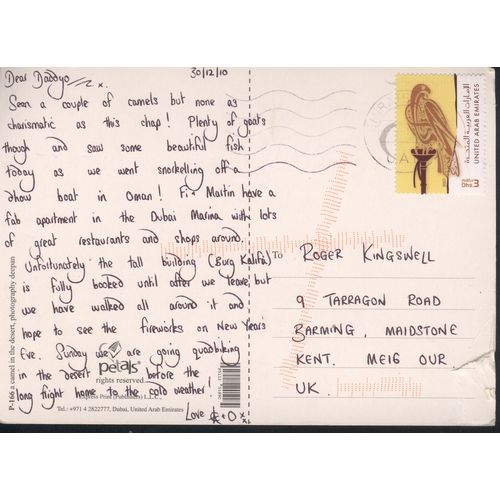 Dear Daddyo
30/12/10
Seen a couple of camels but none as
charismatic as this chap! Plenty of goats
though and saw some beautiful fish
today as we went snorkelling off a
dhow boat in Oman! Fi + Martin have a
fab apartment in the Dubai Marina with lots
of great restaurants and shops around.
Unfortunately the tall building (Burg Kalifa)
is fully booked until after we leave, but
we have walked all around it and
hope to see the fireworks on New Year's
Eve. Sunday we are going quadbiking
in the desert before the
long flight home to the cold weather!
Love
P-166 a camel in the desert, photography deepan
petals
rights reserved
Express Print (Publishers) L.L.C.
Tel.: +971 4 2822777, Dubai, United Arab Emirates
الإمارات العربية المتحدة
UNITED ARAB EMIRATES
Dhs. 3
To ROGER KINGSWELL
9 TARRAGON ROAD
BARMING, MAIDSTONE
KENT. ME16 OUR
UK.